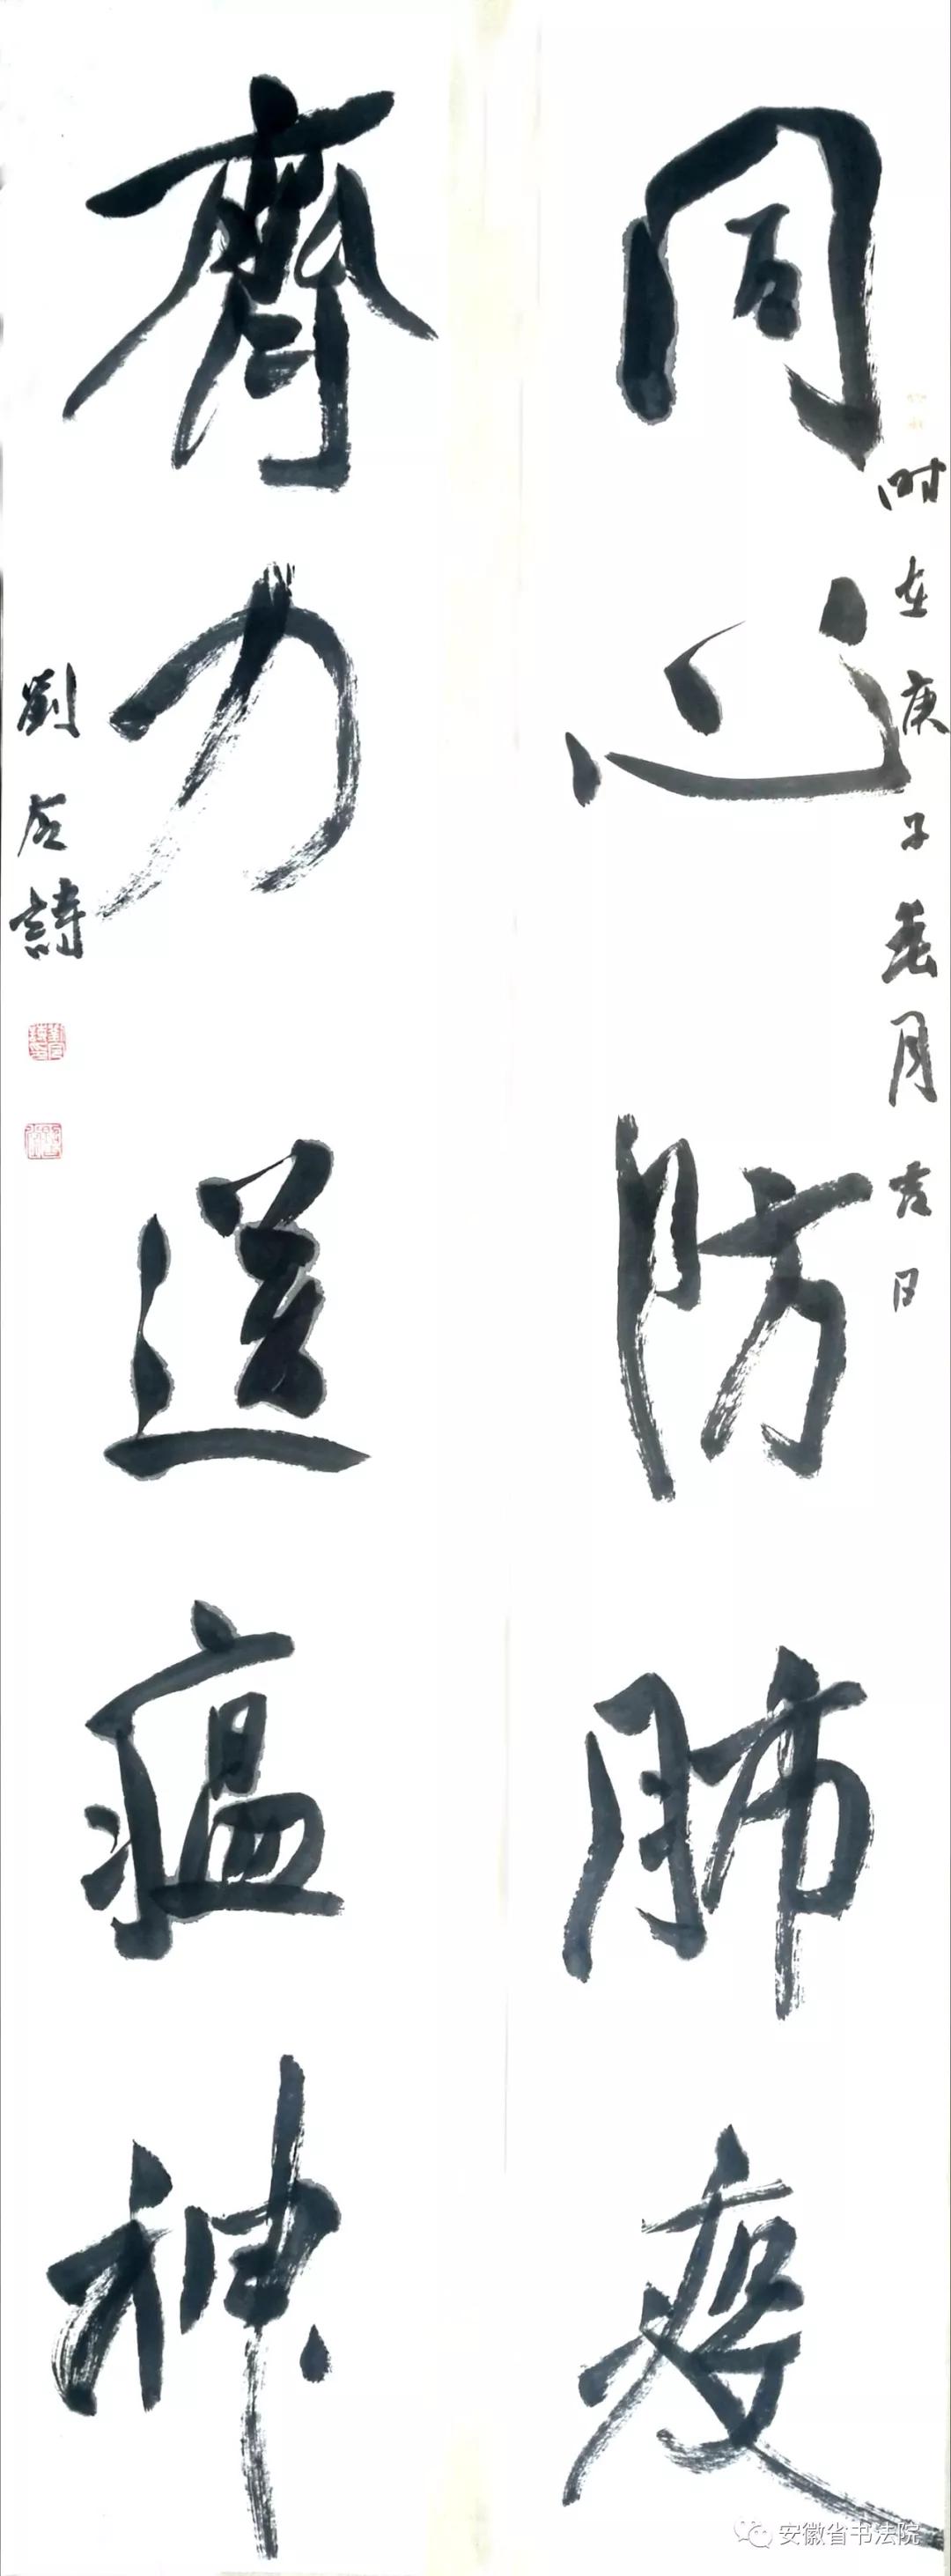 同心防肺疫
時在庚子春月吉日
齊力送瘟神
劉启詩
安徽省书法院